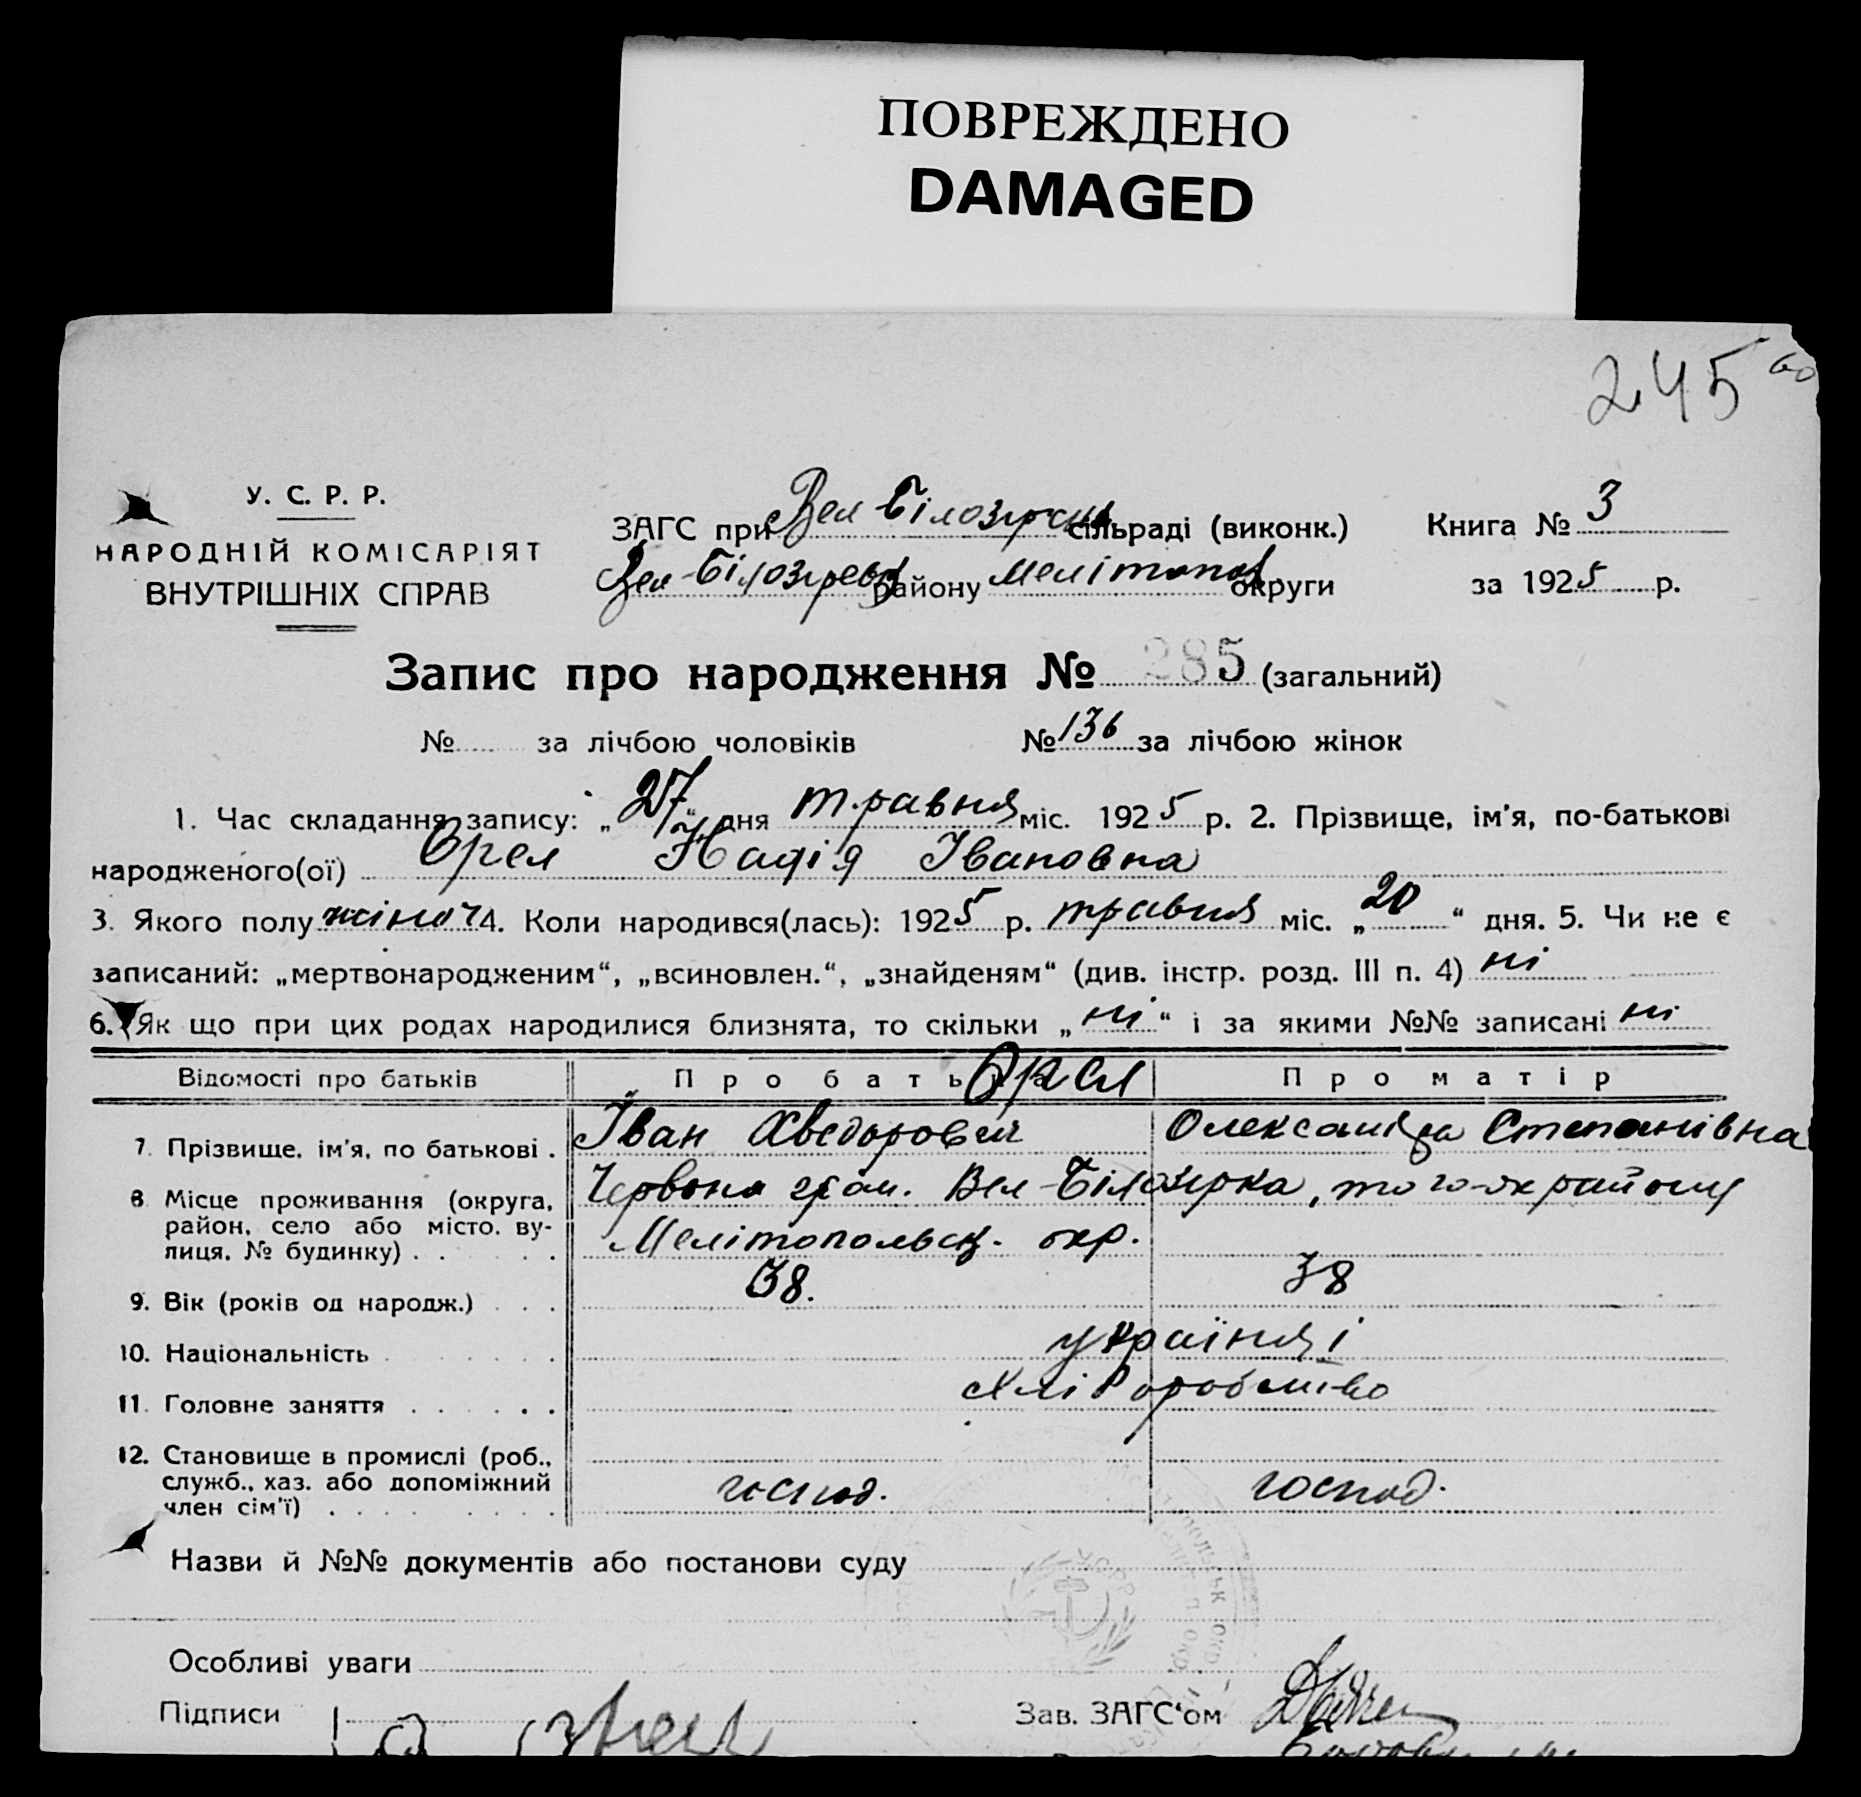 ПОВРЕЖДЕНО
DAMAGED
245
У. С. Р. Р.
НАРОДНІЙ КОМІСАРІЯТ
ВНУТРІШНІХ СПРАВ
ЗАГС при Вел Білозірськ сільраді (виконк.) Книга № 3
Вел-Білозірськ району Мелітопол округи за 1925 р.
Запис про народження № 285 (загальний)
№ за лічбою чоловіків № 136 за лічбою жінок
1. Час складання запису: „27“ дня травня міс. 1925 р. 2. Прізвище, ім'я, по-батькові
народженого(ої) Орел Надія Івановна
3. Якого полу жіноч 4. Коли народився(лась): 1925 р. травня міс. „20“ дня. 5. Чи не є
записаний: „мертвонародженим“, „всиновлен.“, „знайденям“ (див. інстр. розд. III п. 4) ні
6. Як що при цих родах народилися близнята, то скільки „ні“ і за якими №№ записані ні
Відомості про батьків Про батька Орел Про матір
7. Прізвище, ім'я, по батькові . Іван Хведорович Олександра Степанівна
8. Місце проживання (округа, район, село або місто, вулиця, № будинку) . . . . Червона гром. Вел-Білозірка, того-ж району
Мелітопольск. окр.
9. Вік (років од народж.) . . . 38. 38
10. Національність . . . . українці
11. Головне заняття . . . . . . Хліборобство
12. Становище в промислі (роб.,
служб., хаз. або допоміжний
член сім'ї) . . . . . . . . господ. господ.
Назви й №№ документів або постанови суду
Особливі уваги
Підписи Зав. ЗАГС'ом